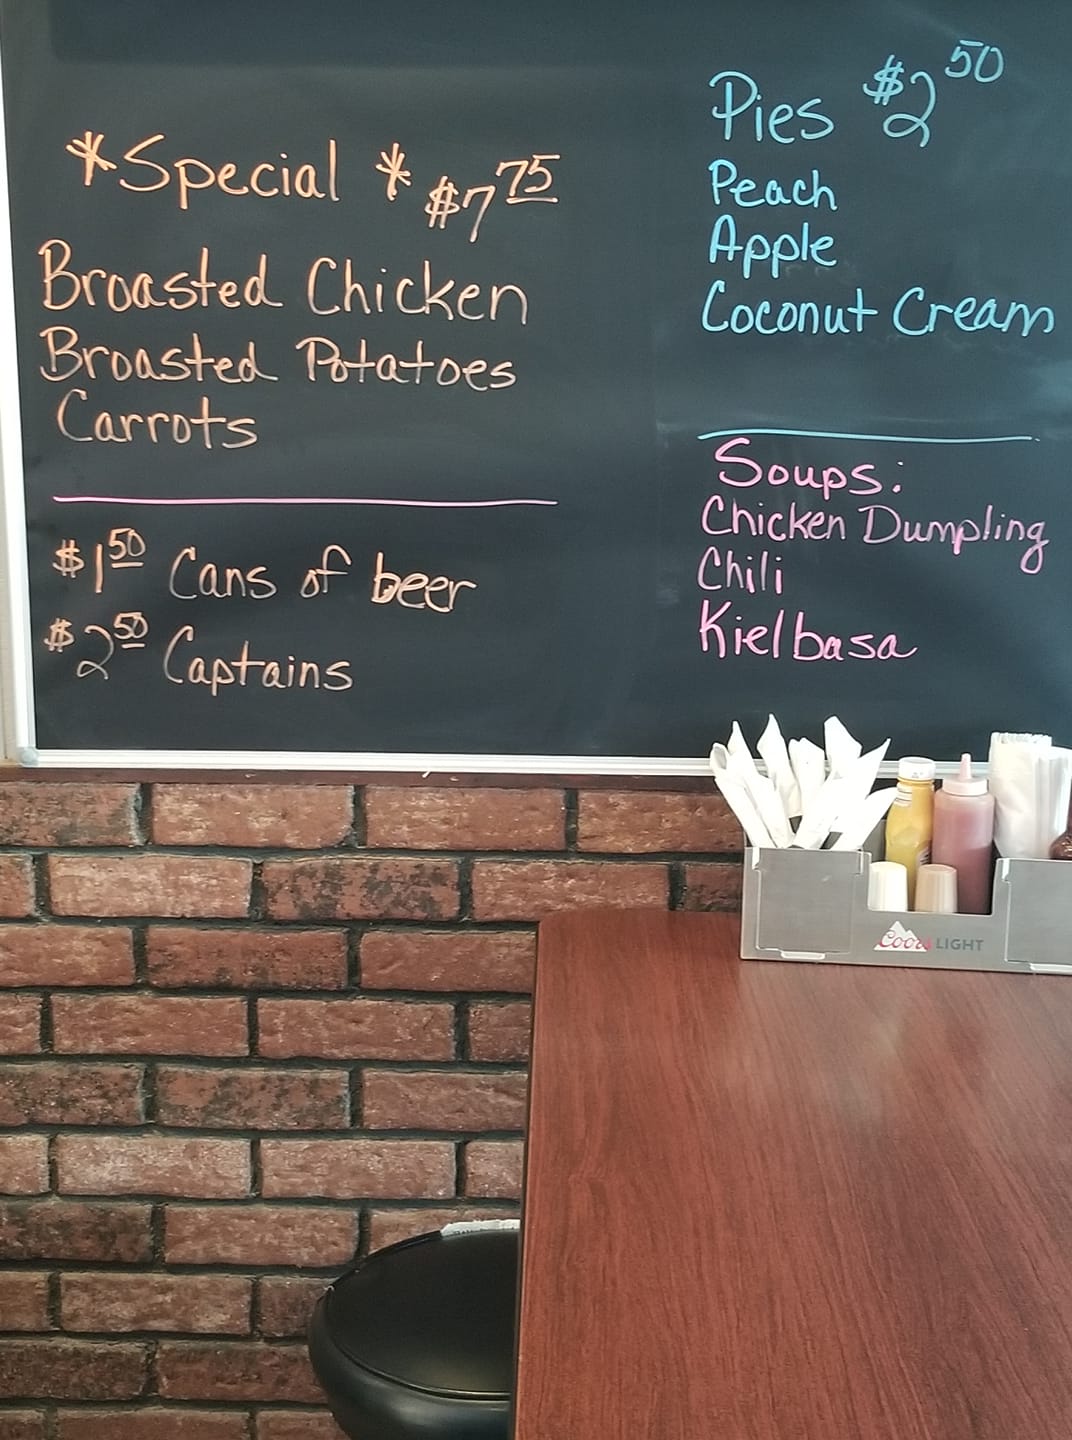 *Special * $7 75
Broasted Chicken
Broasted Potatoes
Carrots
$1 50 Cans of beer
$2 50 Captains
Pies $2 50
Peach
Apple
Coconut Cream
Soups:
Chicken Dumpling
Chili
Kielbasa
Coors LIGHT